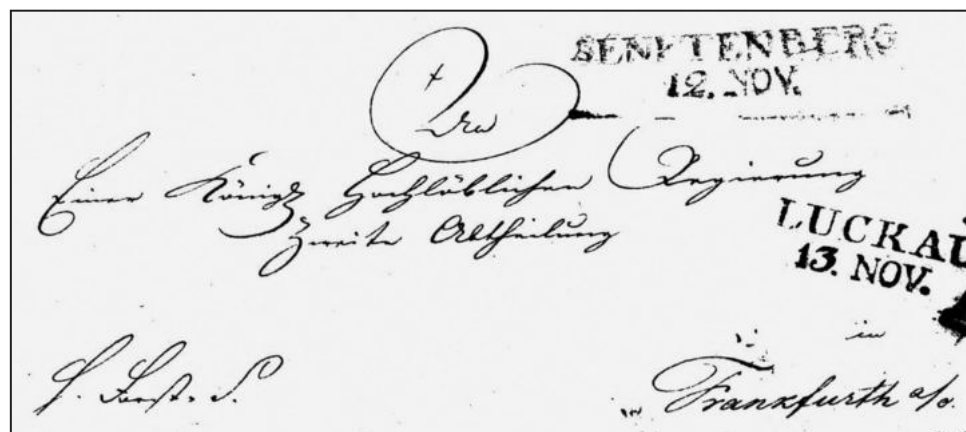 SENFTENBERG
12. NOV.
Einer Königl. Hochlöblichen Regierung
Zweite Abtheilung
LUCKAU
13. NOV.
in
Frankfurth a/o.